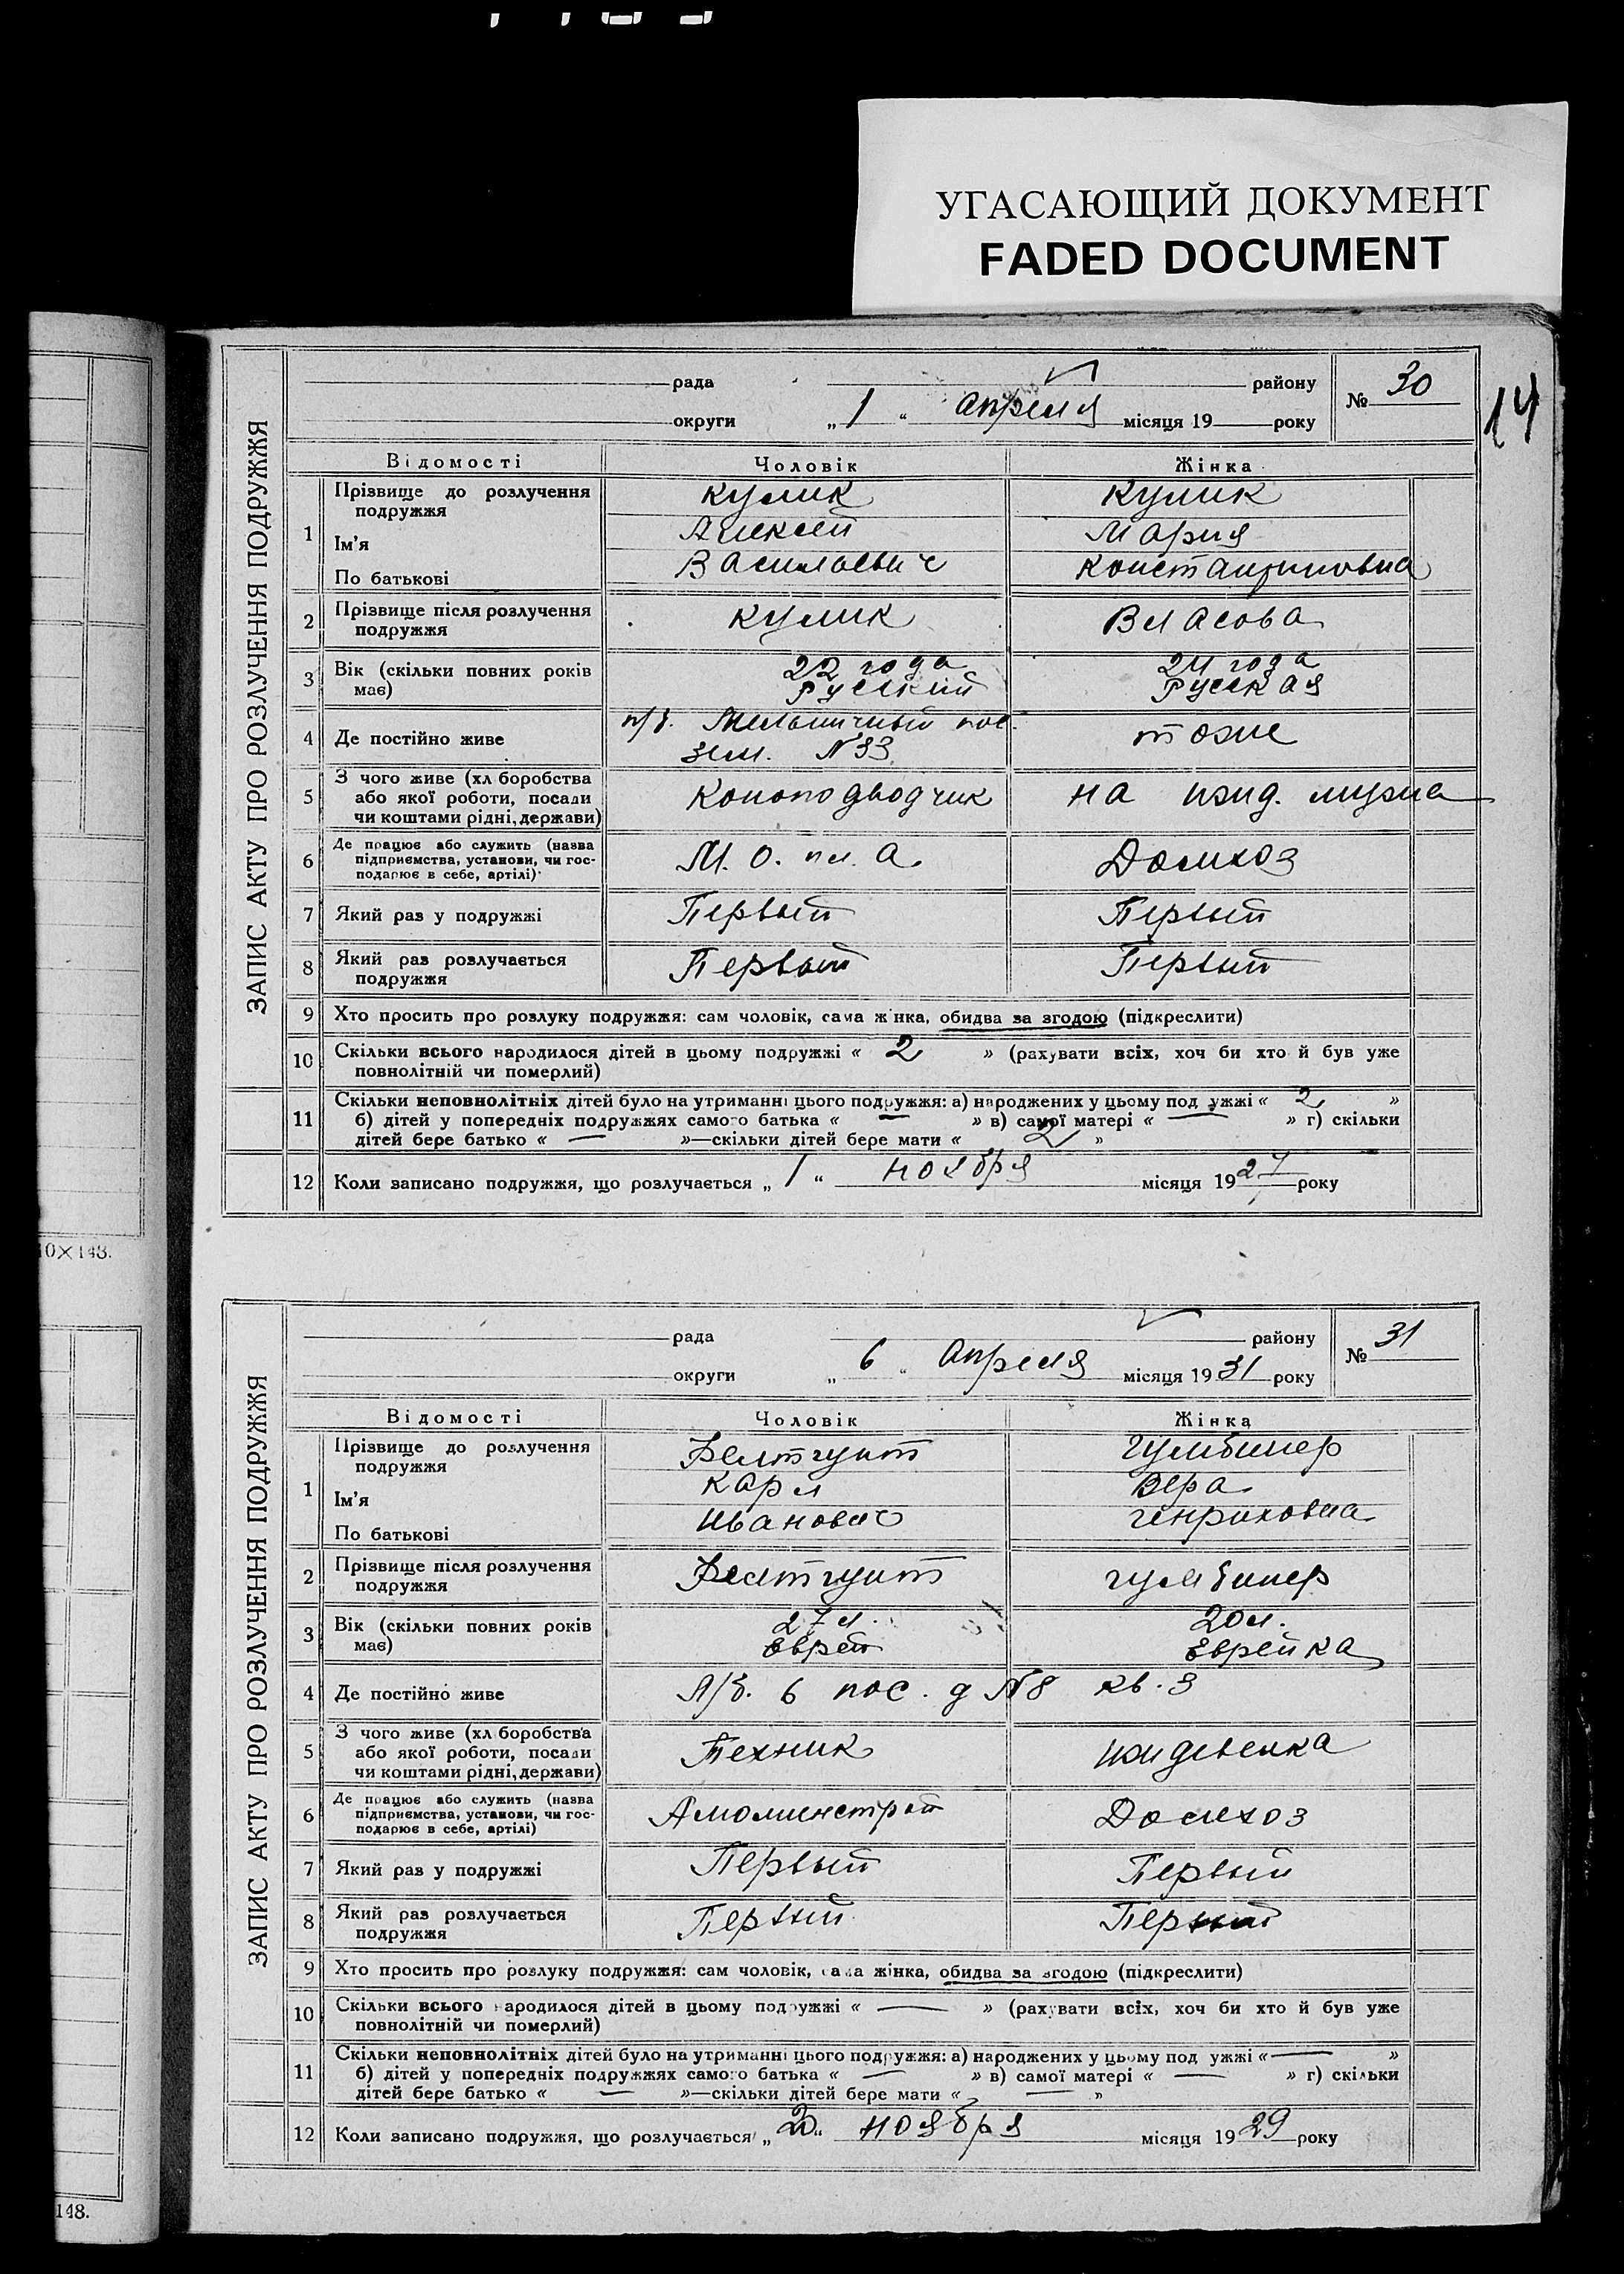 УГАСАЮЩИЙ ДОКУМЕНТ
FADED DOCUMENT
14
ЗАПИС АКТУ ПРО РОЗЛУЧЕННЯ ПОДРУЖЖЯ
рада району № 30
округи „ 1 “ Апреля місяця 19 року
Відомості Чоловік Жінка
1 Прізвище до розлучення подружжя Кулик Кулик
Ім’я Алексей Мария
По батькові Васильевич Константиновна
2 Прізвище після розлучення подружжя Кулик Власова
3 Вік (скільки повних років має) 22 года 24 года
Русский Русская
4 Де постійно живе п/б. Мельничный пос. тоже
зем. N 33
5 З чого живе (хліборобства або якої роботи, посади чи коштами рідні, держави) Коноподводчик на ижд. мужа
6 Де працює або служить (назва підприємства, установи, чи господарює в себе, артілі) М. О. Домхоз
7 Який раз у подружжі Первый Первый
8 Який раз розлучається подружжя Первый Первый
9 Хто просить про розлуку подружжя: сам чоловік, сама жінка, обидва за згодою (підкреслити)
10 Скільки всього народилося дітей в цьому подружжі « 2 » (рахувати всіх, хоч би хто й був уже
повнолітній чи померлий)
11 Скільки неповнолітніх дітей було на утриманні цього подружжя: а) народжених у цьому подружжі « 2 »
б) дітей у попередніх подружжях самого батька « — » в) самої матері « — » г) скільки
дітей бере батько « — »—скільки дітей бере мати « 2 »
12 Коли записано подружжя, що розлучається „ 1 “ ноября місяця 1927 року
10×148.
ЗАПИС АКТУ ПРО РОЗЛУЧЕННЯ ПОДРУЖЖЯ
рада району № 31
округи „ 6 “ Апреля місяця 1931 року
Відомості Чоловік Жінка
1 Прізвище до розлучення подружжя Гумбинер
Ім’я Карл Вера
По батькові Иванович Генриховна
2 Прізвище після розлучення подружжя Гумбинер
3 Вік (скільки повних років має) 27 л. 20 л.
Еврей Еврейка
4 Де постійно живе Л/б. 6 пос. д N 8 кв. 3
5 З чого живе (хліборобства або якої роботи, посади чи коштами рідні, держави) Техник иждевенка
6 Де працює або служить (назва підприємства, установи, чи господарює в себе, артілі) Домхоз
7 Який раз у подружжі Первый Первый
8 Який раз розлучається подружжя Первый Первый
9 Хто просить про розлуку подружжя: сам чоловік, сама жінка, обидва за згодою (підкреслити)
10 Скільки всього народилося дітей в цьому подружжі « — » (рахувати всіх, хоч би хто й був уже
повнолітній чи померлий)
11 Скільки неповнолітніх дітей було на утриманні цього подружжя: а) народжених у цьому подружжі « — »
б) дітей у попередніх подружжях самого батька « — » в) самої матері « — » г) скільки
дітей бере батько « — »—скільки дітей бере мати « — »
12 Коли записано подружжя, що розлучається „ 20 “ ноября місяця 1929 року
148.